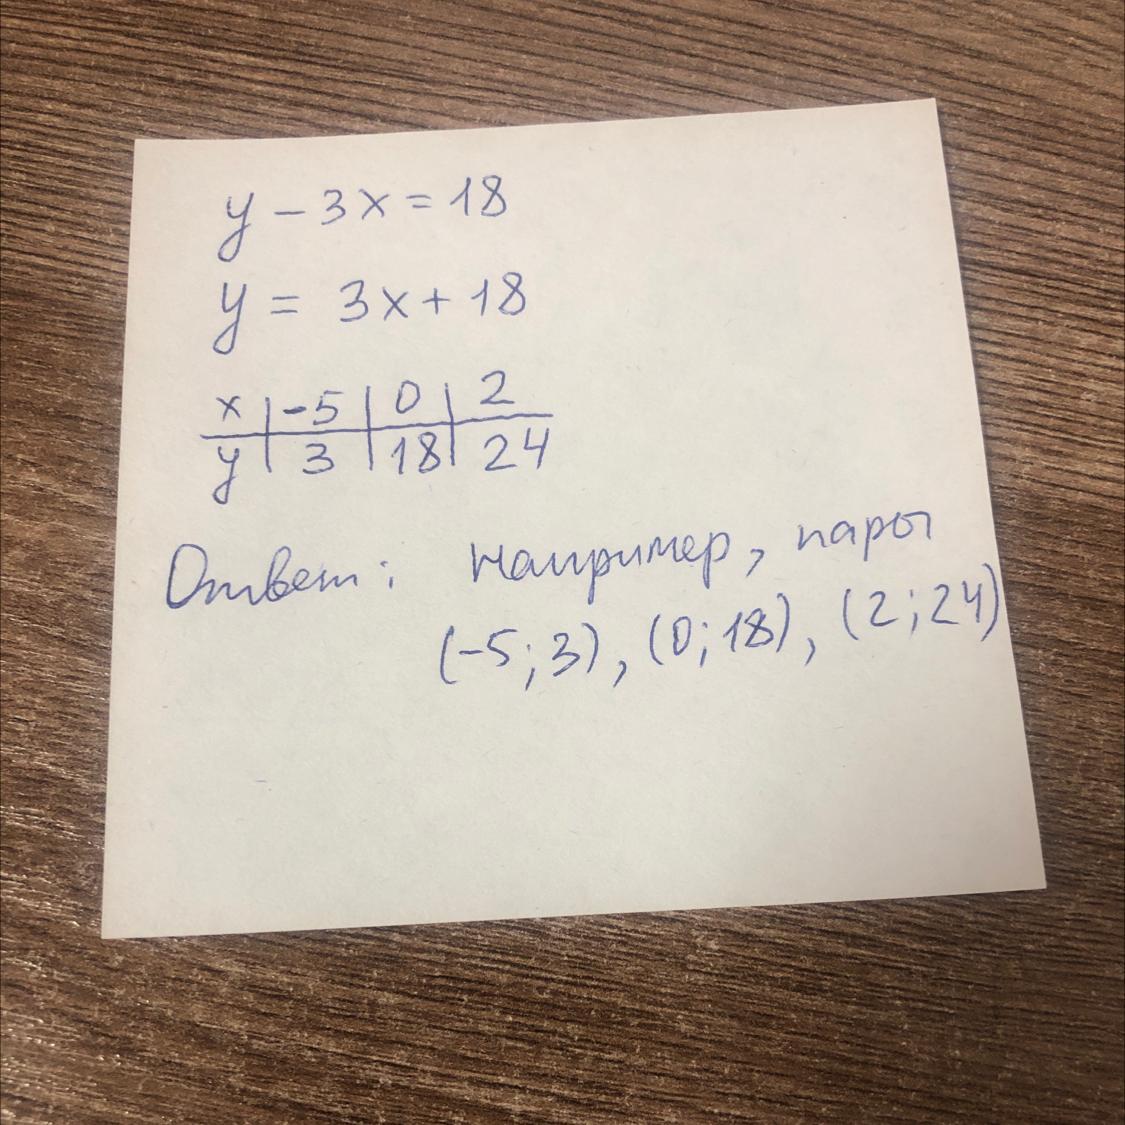 y - 3x = 18
y = 3x + 18
x | -5 | 0 | 2
y | 3 | 18 | 24
Ответ: Например, пары
(-5; 3), (0; 18), (2; 24)